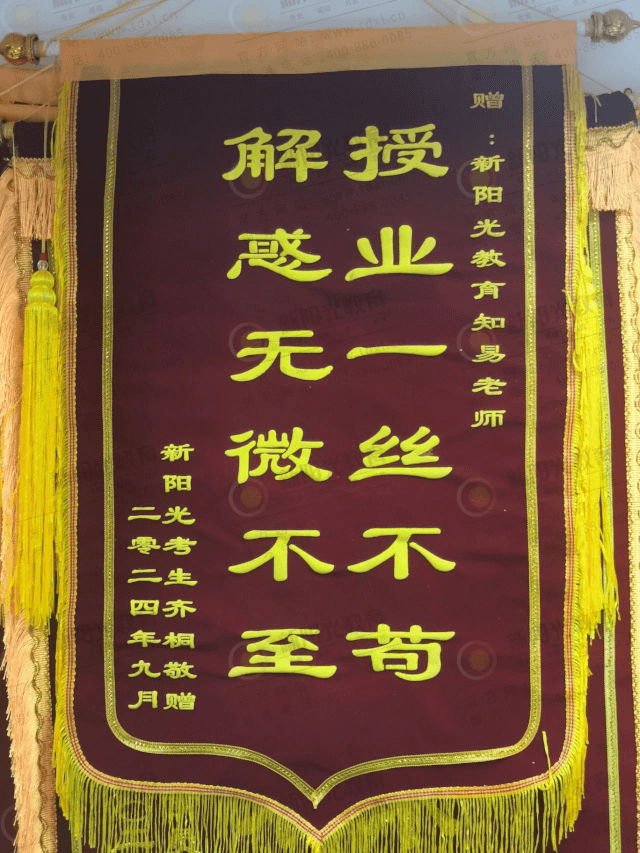 赠：新阳光教育知易老师
授业一丝不苟
解惑无微不至
新阳光考生齐桐敬赠
二零二四年九月